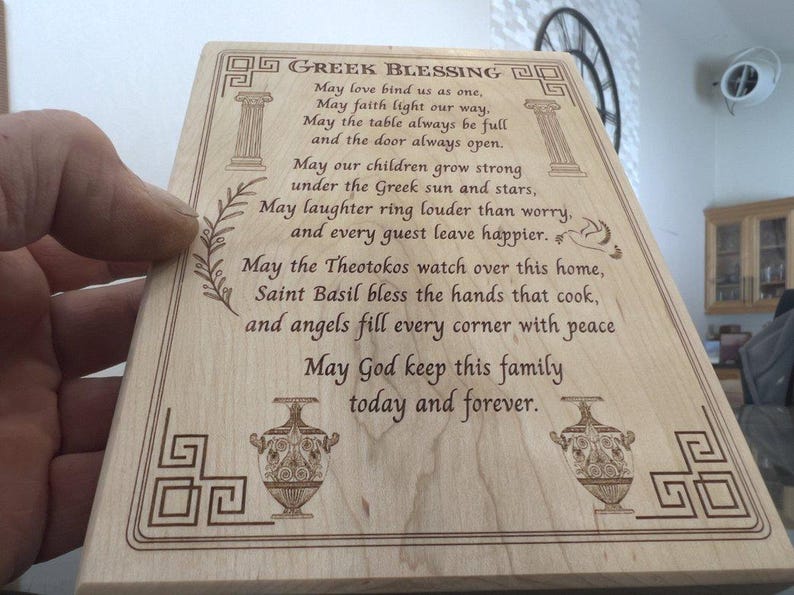 Greek Blessing
May love bind us as one,
May faith light our way,
May the table always be full
and the door always open.
May our children grow strong
under the Greek sun and stars,
May laughter ring louder than worry,
and every guest leave happier.
May the Theotokos watch over this home,
Saint Basil bless the hands that cook,
and angels fill every corner with peace
May God keep this family
today and forever.